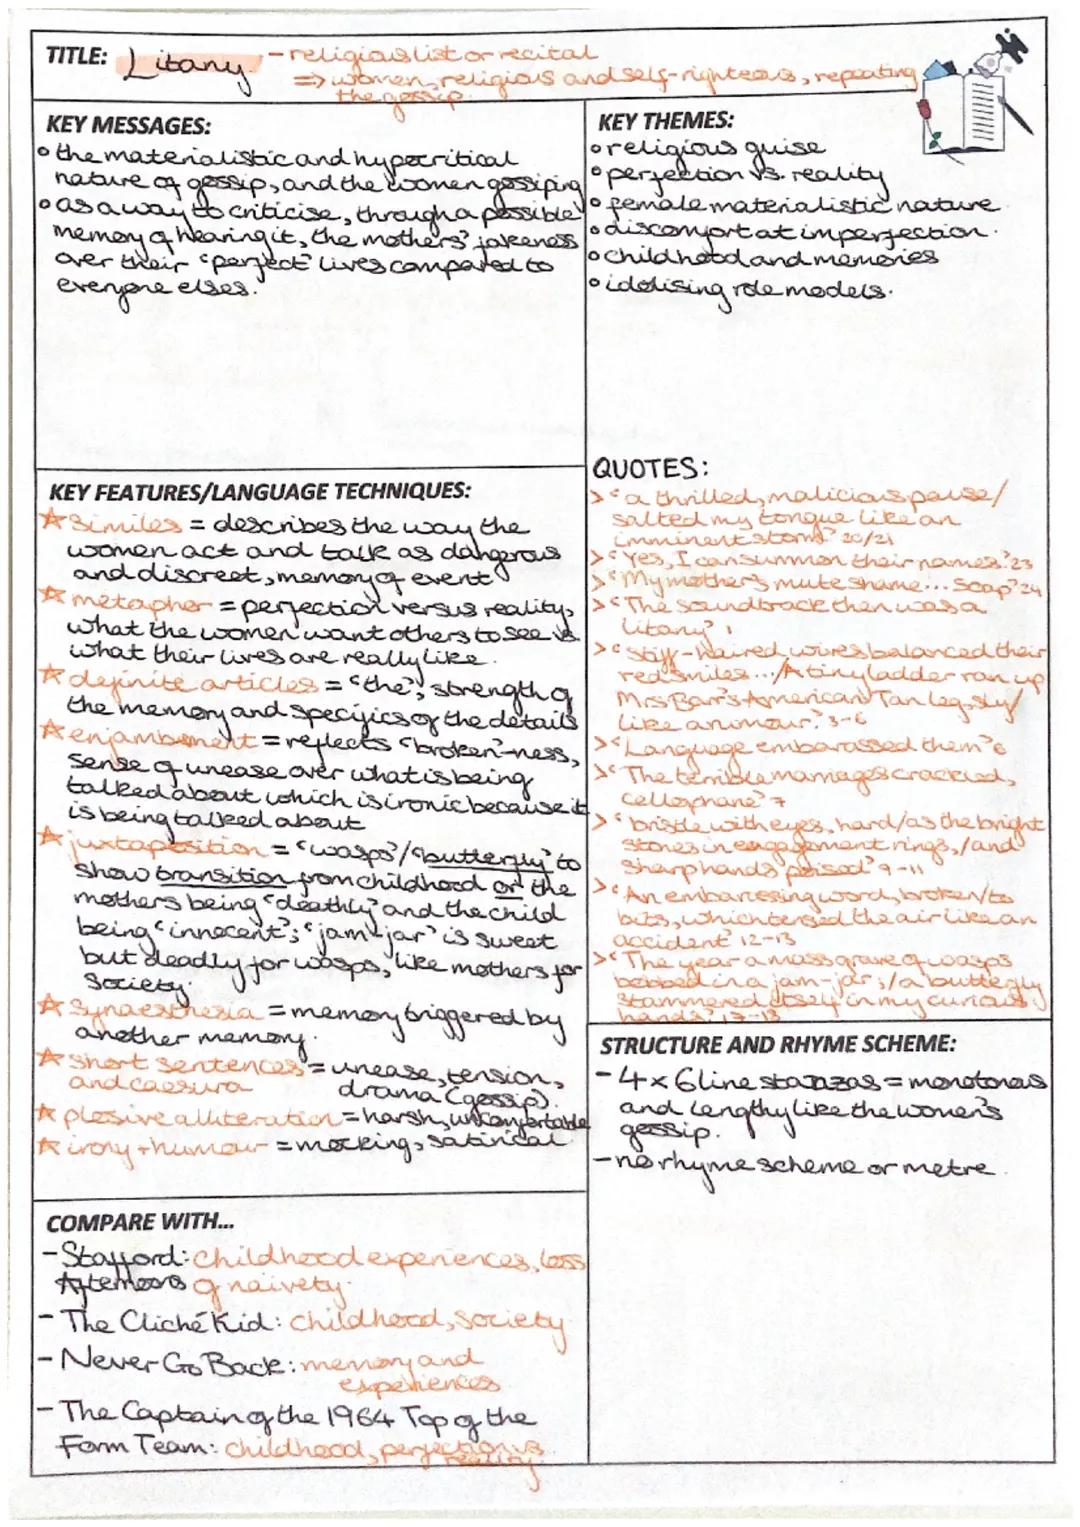 TITLE: Litany - religious list or recital
=> women, religious and self-righteous, repeating
the gossip.
KEY MESSAGES:
• the materialistic and hypocritical
nature of gossip, and the women gossiping
• as a way to criticise, through a possible
memory of hearing it, the mothers' fakeness
over their 'perfect' lives compared to
everyone elses.
KEY THEMES:
• religious guise
• perfection vs. reality
• female materialistic nature
• discomfort at imperfection.
• childhood and memories
• idolising role models.
KEY FEATURES/LANGUAGE TECHNIQUES:
☆ similes = describes the way the
women act and talk as dangerous
and discreet, memory of event
☆ metaphor = perfection versus reality,
what the women want others to see vs
what their lives are really like.
☆ definite articles = 'the', strength of
the memory and specifics of the details
☆ enjambment = reflects 'broken'-ness,
sense of unease over what is being
talked about which is ironic because it
is being talked about
☆ juxtaposition = 'wasps'/'butterfly' to
show transition from childhood or the
mothers being 'deathly' and the child
being 'innocent'; 'jam-jar' is sweet
but deadly for wasps, like mothers for
society.
☆ synaesthesia = memory triggered by
another memory.
☆ short sentences = unease, tension,
and caesura drama (gossip).
☆ plosive alliteration = harsh, uncomfortable
☆ irony + humour = mocking, satirical
QUOTES:
> 'a thrilled, malicious pause/
salted my tongue like an
imminent storm.' 20/21
> 'Yes, I can summon their names.' 23
> 'My mother's mute shame... soap' 24
> 'The soundtrack then was a
litany' 1
> 'stiff-haired wives balanced their
red smiles.../A tiny ladder ran up
Mrs Barr's American Tan leg, sly/
like a rumour.' 3-6
> 'Language embarassed them' 6
> 'The terrible marriages crackled,
cellophane' 7
> 'bristle with eyes, hard/as the bright
stones in engagement rings,/and
sharp hands poised' 9-11
> 'An embarrassing word, broken/to
bits, which tensed the air like an
accident' 12-13
> 'The year a mass grave of wasps
bobbed in a jam-jar;/a butterfly
stammered itself in my curious
hands.' 17-18
STRUCTURE AND RHYME SCHEME:
- 4 x 6 line stanzas = monotonous
and lengthy like the women's
gossip.
- no rhyme scheme or metre.
COMPARE WITH...
- Stafford: childhood experiences, loss
Afternoons of naivety.
- The Cliché Kid: childhood, society
- Never Go Back: memory and
experiences
- The Captain of the 1964 Top of the
Form Team: childhood, perfection vs
reality